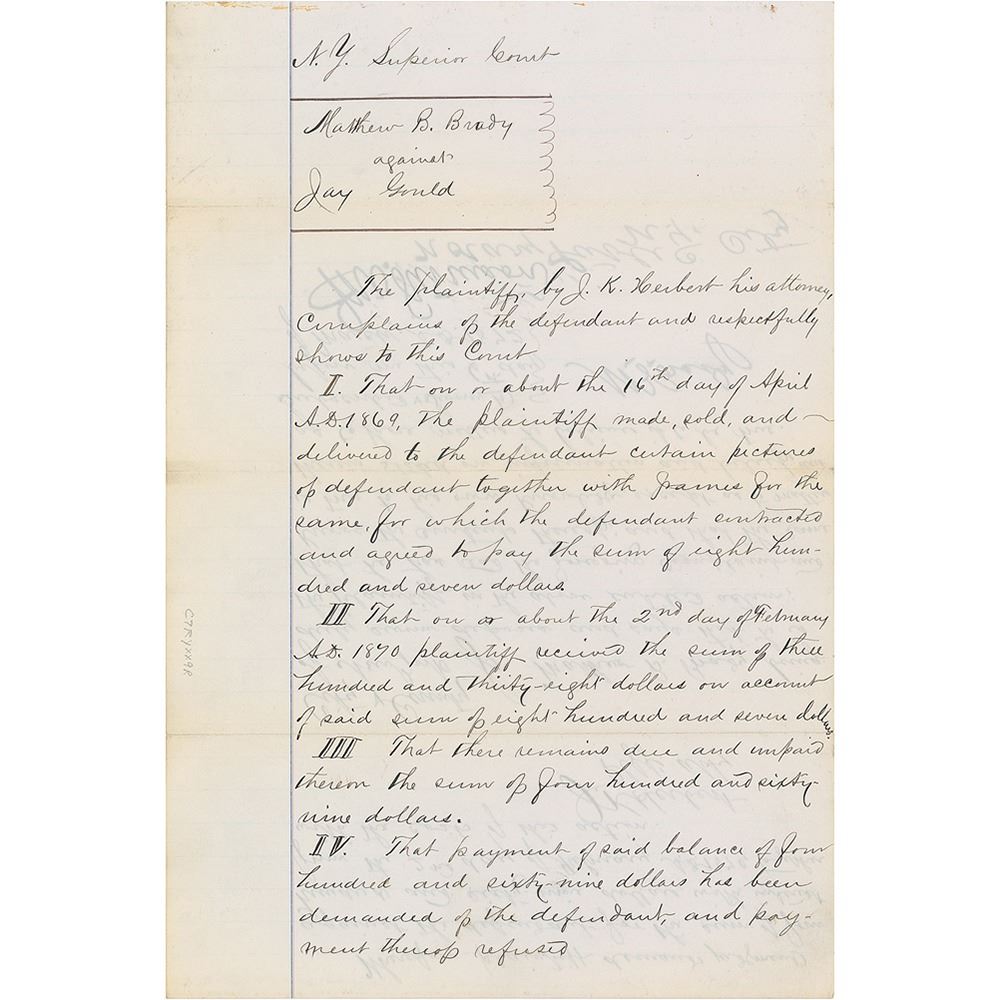 N. Y. Superior Court
Matthew B. Brady
against
Jay Gould
The plaintiff, by J. K. Herbert his attorney,
Complains of the defendant and respectfully
shows to this Court
I. That on or about the 16th day of April
A.D. 1869, the plaintiff made, sold, and
delivered to the defendant certain pictures
of defendant together with frames for the
same, for which the defendant contracted
and agreed to pay the sum of eight hun-
dred and seven dollars.
II That on or about the 2nd day of February
A.D. 1870 plaintiff received the sum of three
hundred and thirty-eight dollars on account
of said sum of eight hundred and seven dollars.
III That there remains due and unpaid
thereon the sum of four hundred and sixty-
nine dollars.
IV. That payment of said balance of four
hundred and sixty-nine dollars has been
demanded of the defendant, and pay-
ment thereof refused